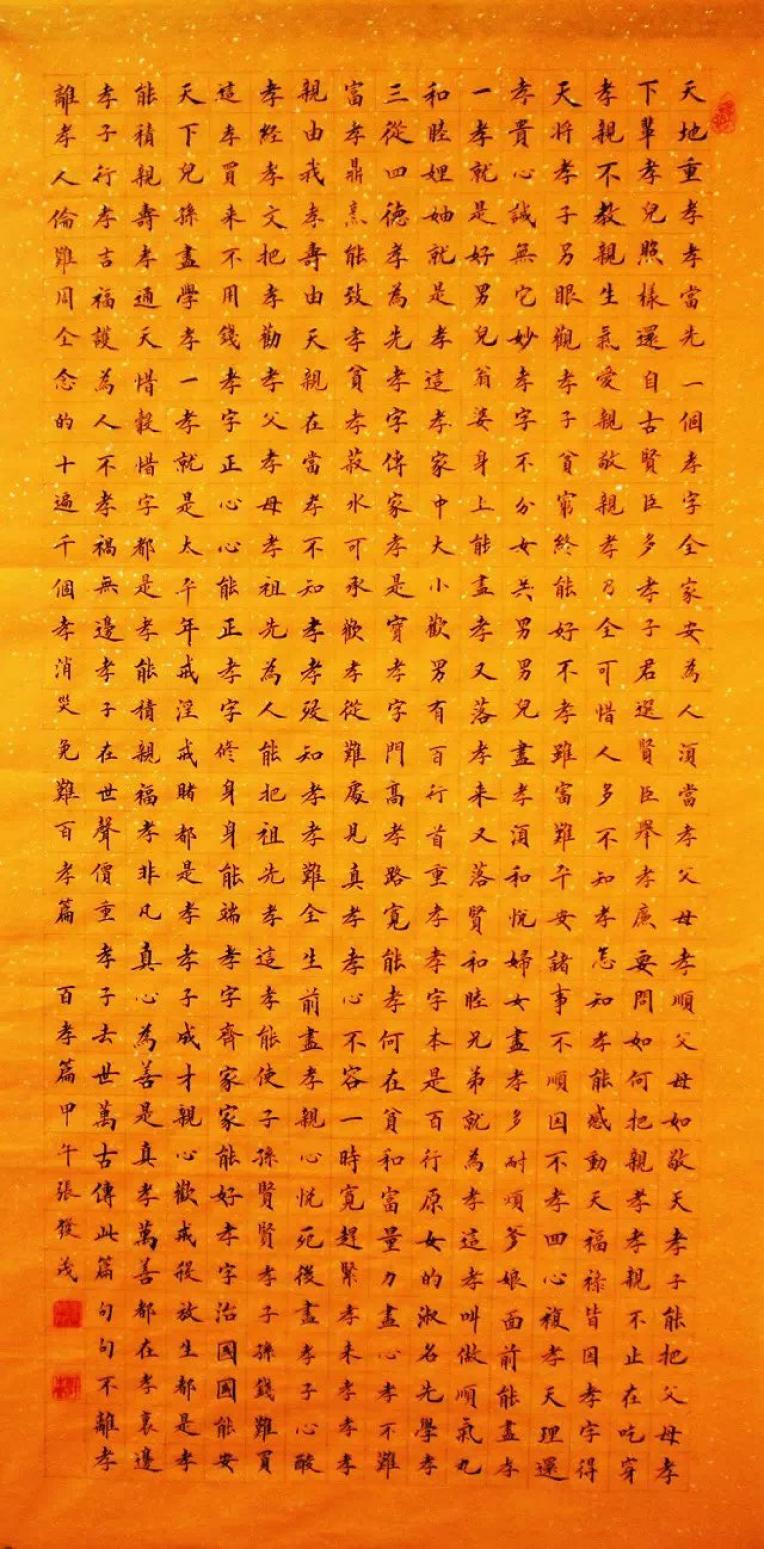 天地重孝孝當先一個孝字全家安為人須當孝父母孝順父母如敬天孝子能把父母孝
下輩孝兒照樣還自古賢臣多孝子君選賢臣舉孝廉要問如何把親孝孝親不止在吃穿
孝親不教親生氣愛親敬親孝乃全可惜人多不知孝怎知孝能感動天福祿皆因孝字得
天將孝子另眼觀孝子貧窮終能好不孝雖富難平安諸事不順因不孝回心複孝天理還
孝貴心誠無它妙孝字不分女共男男兒盡孝須和悅婦女盡孝多耐煩爹娘面前能盡孝
一孝就是好男兒翁婆身上能盡孝又落孝来又落賢和睦兄弟就為孝這孝叫做順氣丸
和睦娌妯就是孝這孝家中大小歡男有百行首重孝孝字本是百行原女的淑名先學孝
三從四德孝為先孝字傳家孝是寶孝字門高孝路寬能孝何在貧和富量力盡心孝不難
富孝鼎烹能致孝貧孝菽水可承歡孝從難處見真孝孝心不容一時寬趕緊孝来孝孝孝
親由我孝壽由天親在當孝不知孝孝歿知孝孝難全生前盡孝親心悅死後盡孝子心酸
孝經孝文把孝勸孝父孝母孝祖先為人能把祖先孝這孝能使子孫賢賢孝子孫錢難買
這孝買来不用錢孝字正心心能正孝字修身身能端孝字齊家家能好孝字治國國能安
天下兒孫盡學孝一孝就是太平年戒淫戒賭都是孝孝子成才親心歡戒殺放生都是孝
能積親壽孝通天惜穀惜字都是孝能積親福孝非凡真心為善是真孝萬善都在孝裏邊
孝子行孝吉福護為人不孝禍無邊孝子在世聲價重孝子去世萬古傳此篇句句不離孝
離孝人倫難周全念的十遍千個孝消災免難百孝篇 百孝篇甲午張發茂